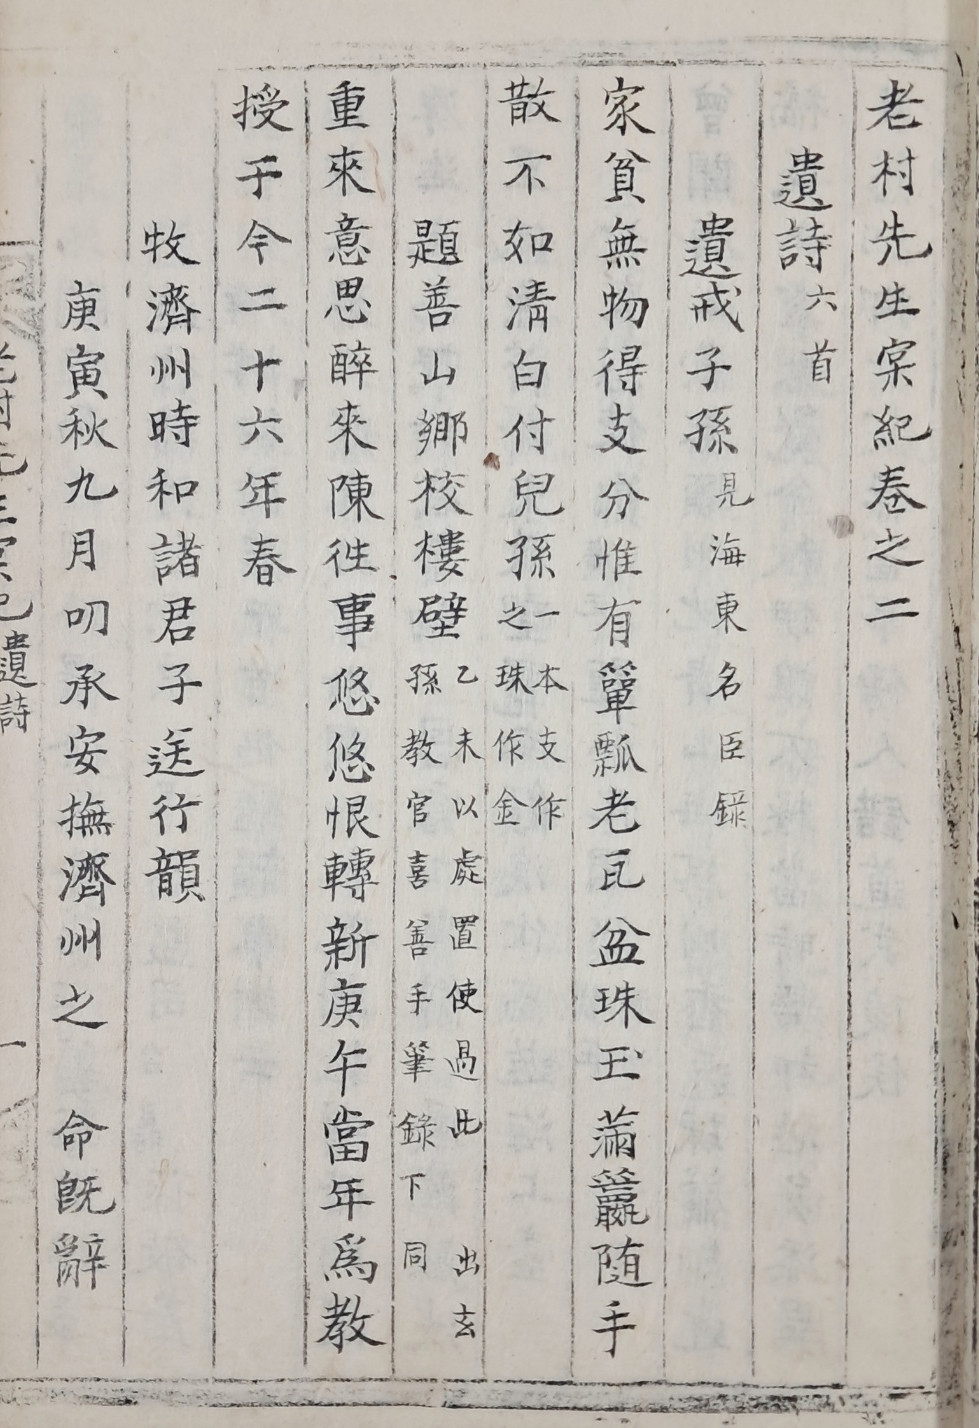 老村先生宲紀卷之二
遺詩六首
遺戒子孫見海東名臣錄
家貧無物得支分惟有簞瓢老瓦盆珠玉滿籯随手
散不如淸白付兒孫一本支作之珠作金
題善山鄕校樓壁乙未以處置使過此 出玄孫教官喜善手筆錄下同
重來意思醉來陳徃事悠悠恨轉新庚午當年爲教
授于今二十六年春
牧濟州時和諸君子送行韻
庚寅秋九月叨承安撫濟州之 命旣辭
老村先生宲紀 遺詩 一